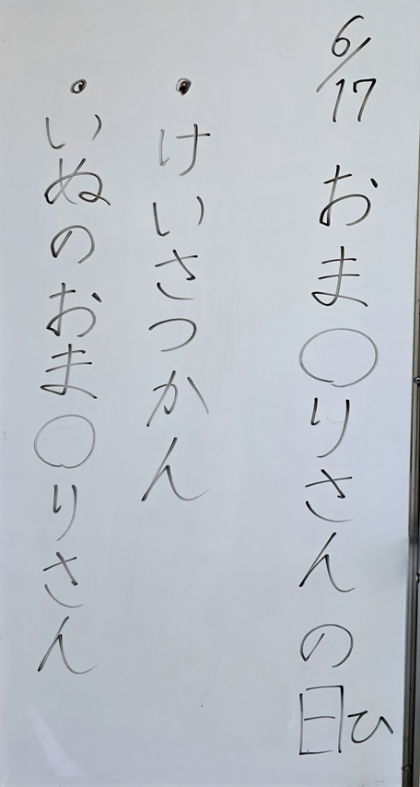 6/17 おま○りさんの日ひ
・けいさつかん
・いぬのおま○りさん